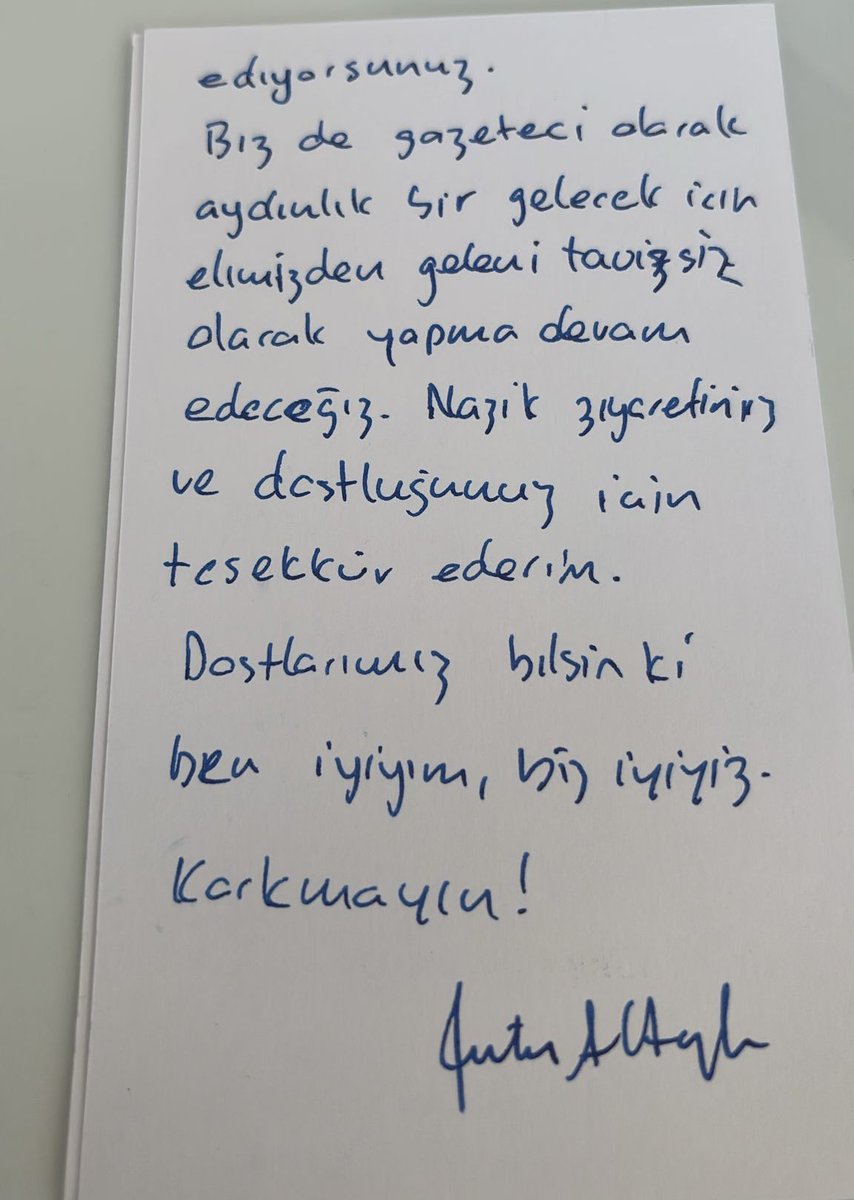 ediyorsunuz.
Biz de gazeteci olarak
aydınlık bir gelecek icin
elimizden geleni tavizsiz
olarak yapma devam
edeceğiz. Nazik ziyaretiniz
ve dostluğunuz icin
tesekkür ederim.
Dostlarımız bilsin ki
ben iyiyim, biz iyiyiz.
Korkmayın!